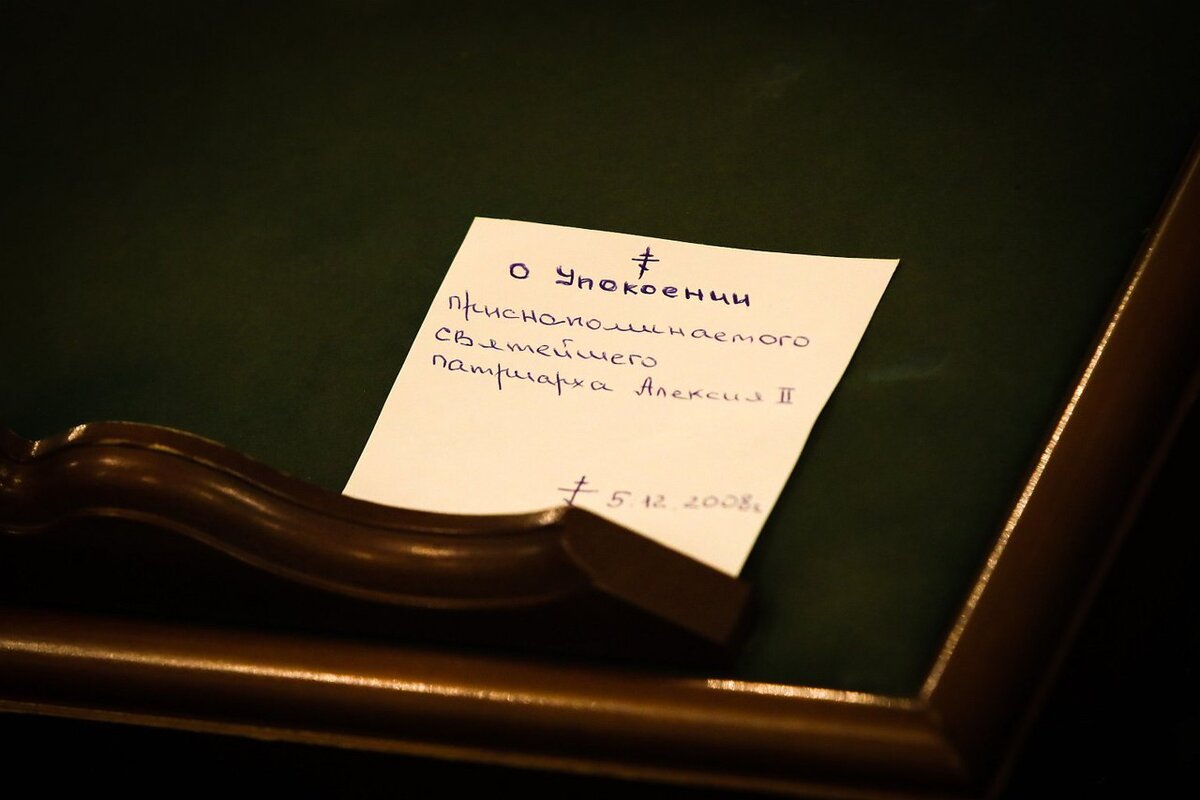 ☦
О Упокоении
приснопоминаемого
святейшего
патриарха Алексия II
☦ 5.12.2008г